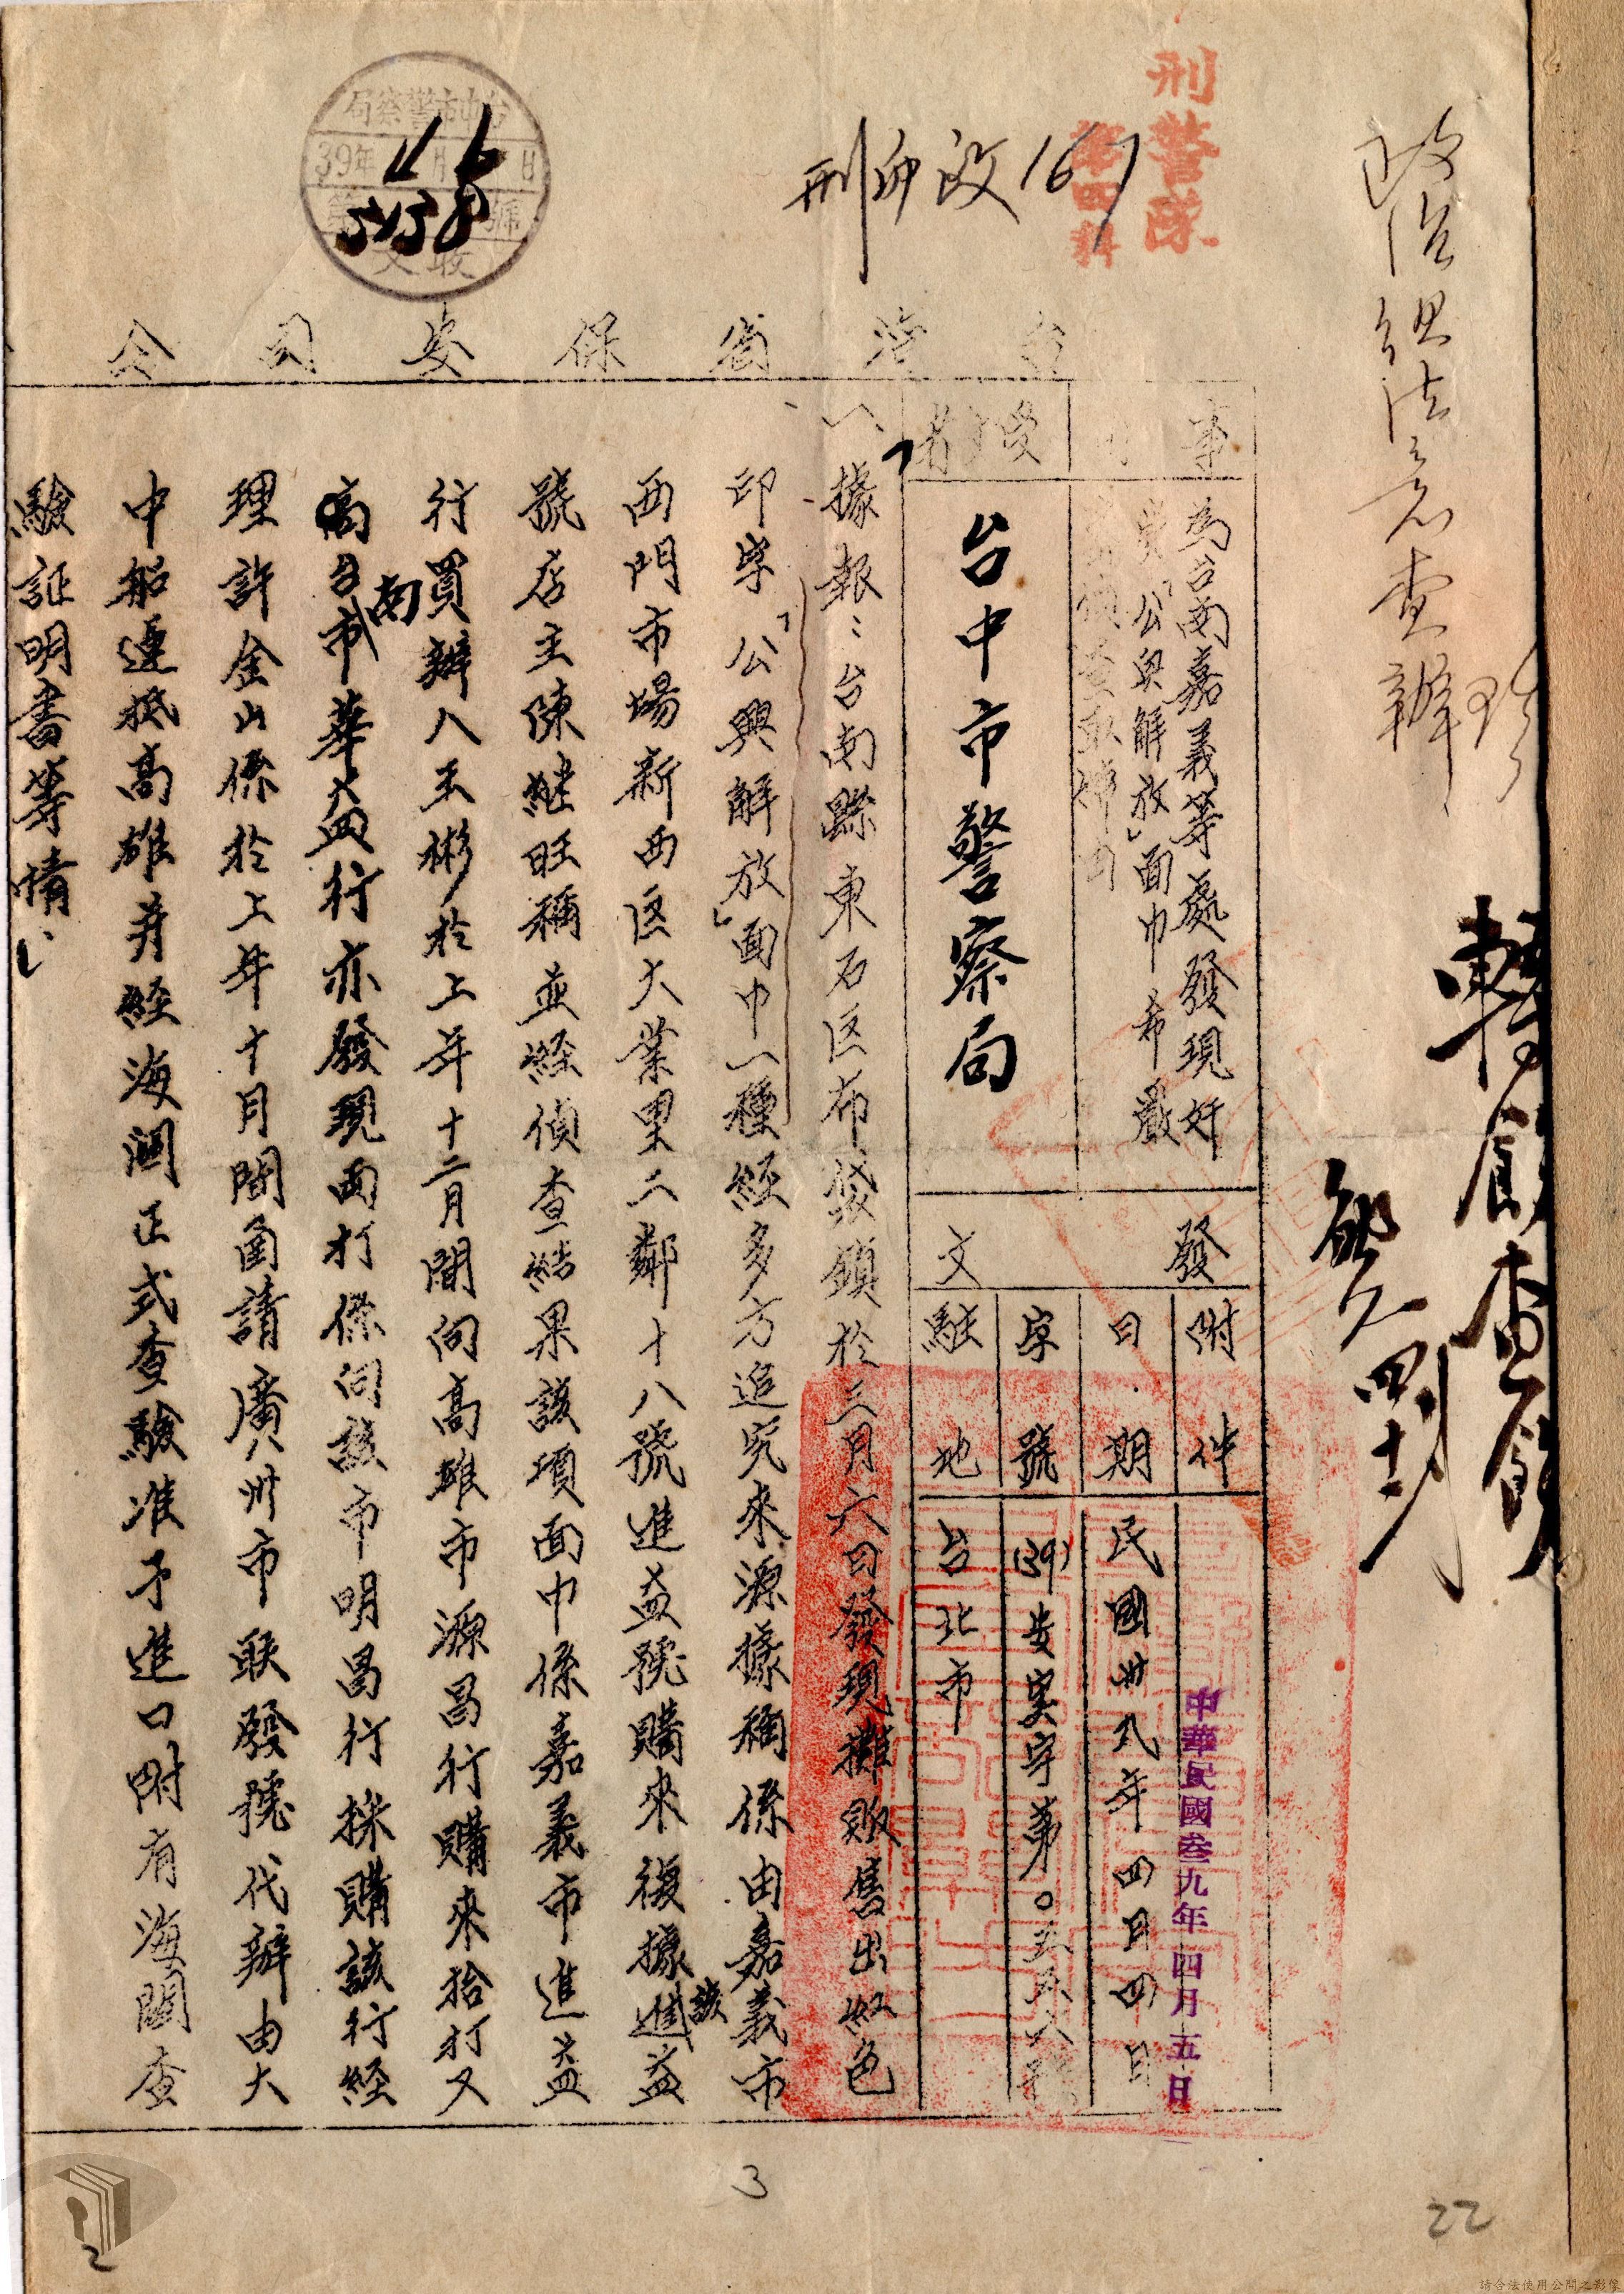 政治組法意查辦
刑警隊
第四科
刑鈿政167
台中市警察局
39年4月6日
第5458號
收文
台灣省保安司令
事由
為台南嘉義等處發現奸
黨「公與解放」面巾希嚴
受文者
台中市警察局
發文
附件
日期
民國卅九年四月四日
中華民國叁九年四月五日
字號
(39)安寔字第
駐地
台北市
一、據報：台南縣東石区布袋鎮於三月六日發現攤販售出紅色
印字「公興解放」面巾一種經多方追究來源據稱係由嘉義市
西門市場新西区大業里二鄰十八號進益號購來復據該進益
號店主陳継旺稱並經偵查結果該項面巾係嘉義市進益
行買辦人王彬於上年十二月間向高雄市源昌行購來拾打又
台南市華益行亦發現両打係向該市明昌行採購該行経
理許金山係於上年十月間函請廣州市联發號代辦由大
中船運抵高雄并經海関正式查驗准予進口附有海關查
驗証明書等情
3
22
2
請合法使用公開之影像